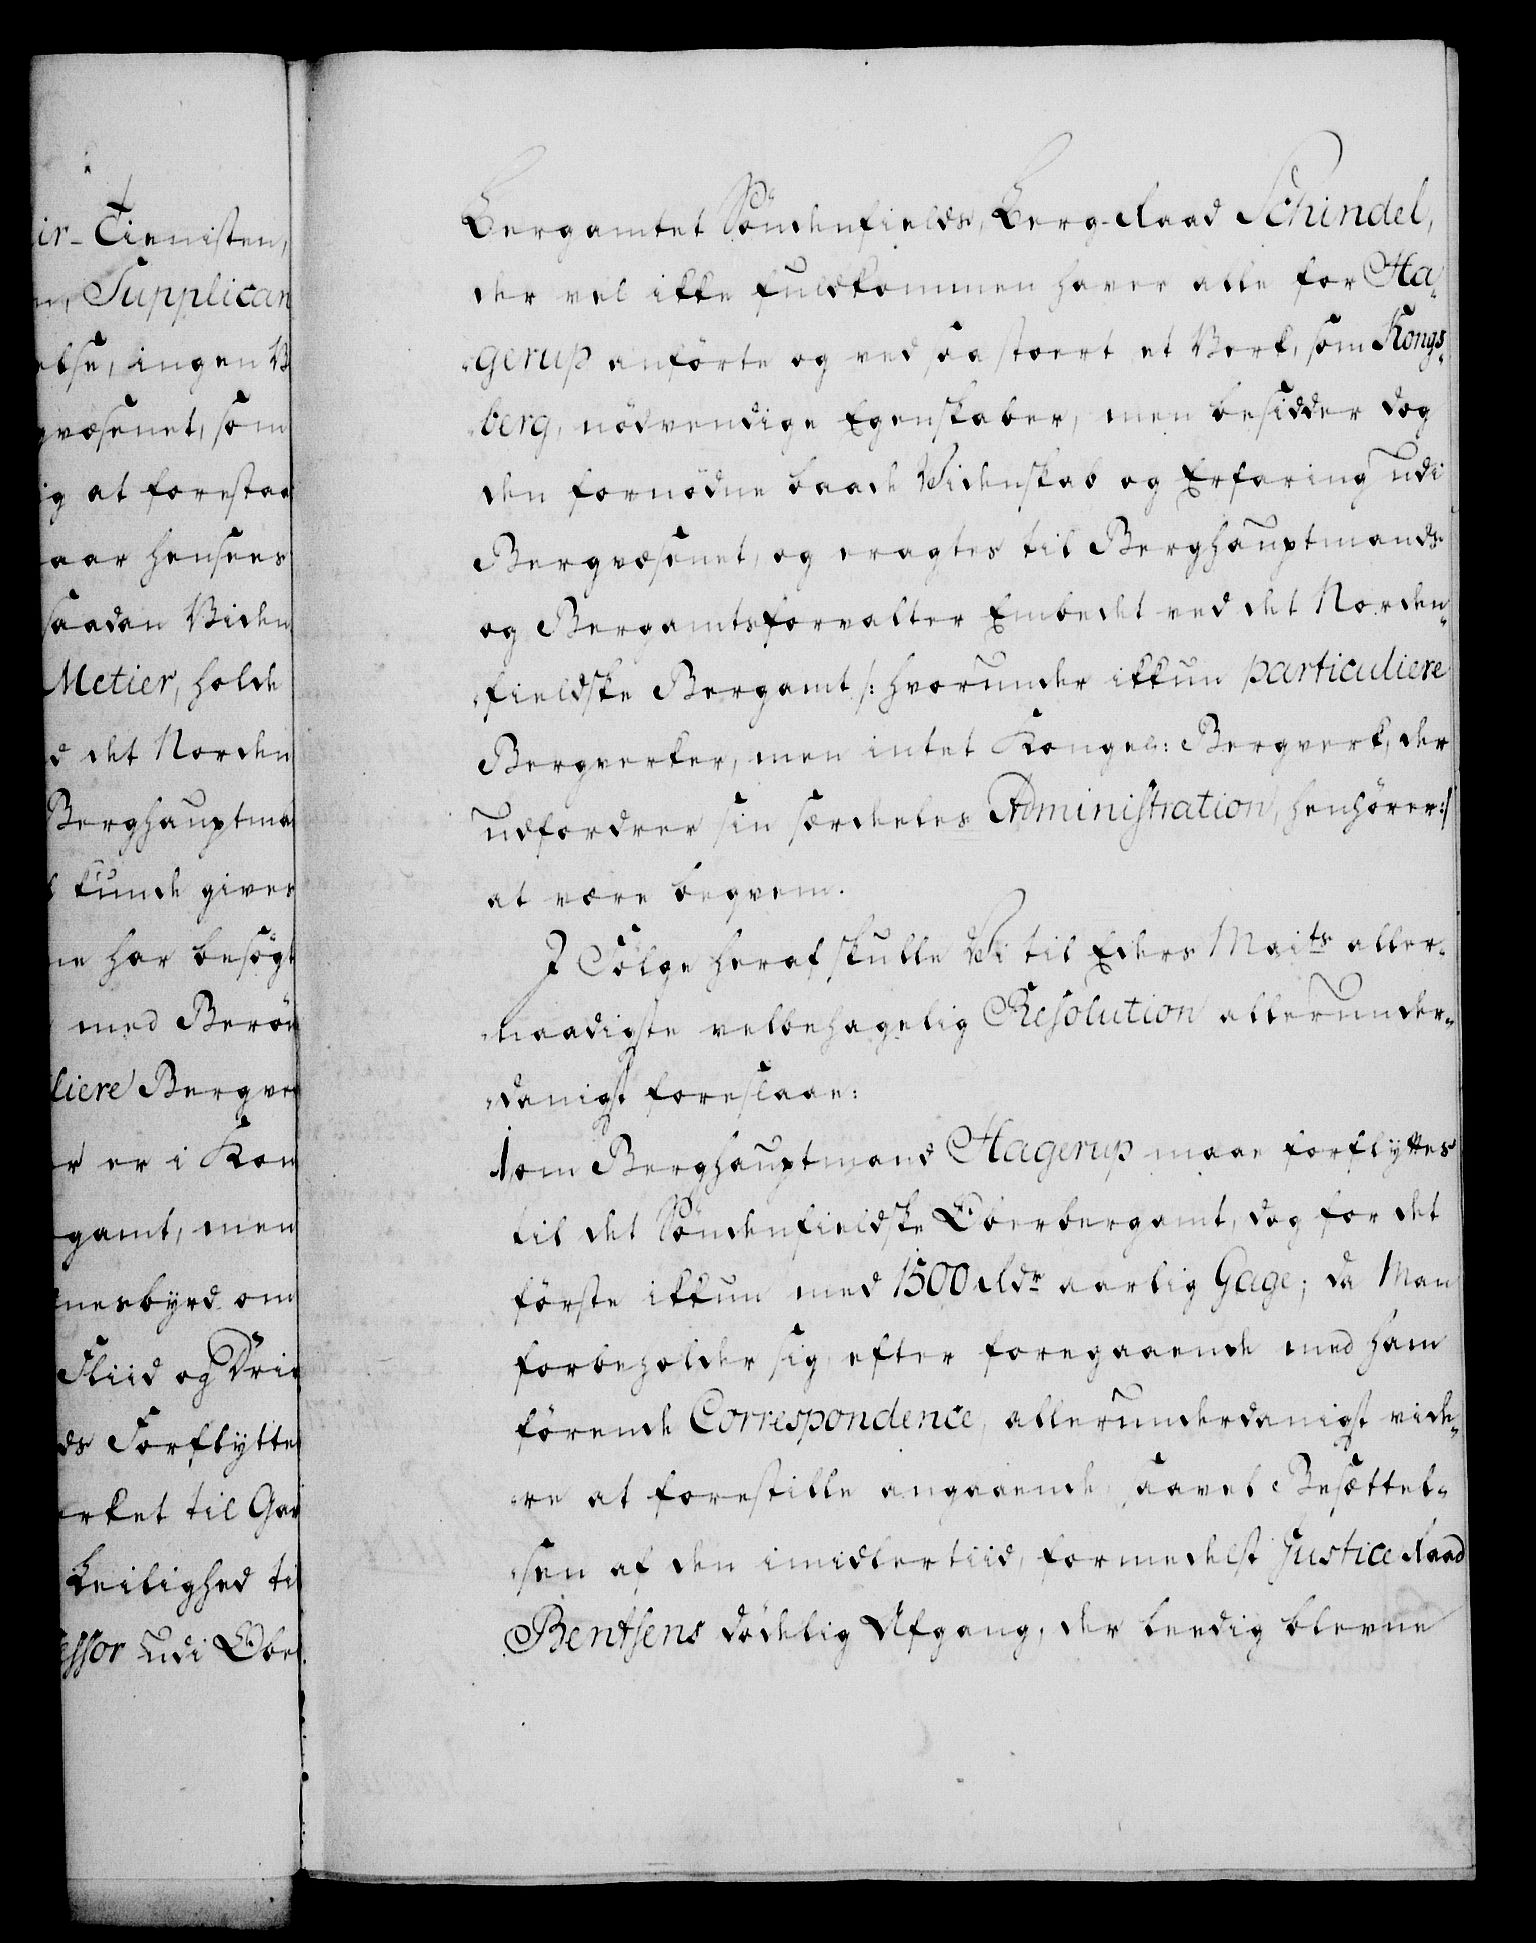 ir-Tienisten,
n, Supplican
else, ingen B
gvæsenet, som
ig at forestaa
aar hensees
saadan Viden
Metier, holde
d det Norden
Berghauptma
kunde gives
ne har besögt
med Beröm
liere Bergver
r er i Kon
gamt, men
nesbyrd om
Fliid og Drif
ds Forflytte
erket til Gav
Leilighed ti
essor udi Ober
Bergamtet Söndenfields, Berg-Raad Schindel,
der vel ikke fuldkommen haver alle for Ha-
gerup anförte og ved saa stoert et Verk, som Kongs-
berg, nödvendige Egenskaber, men besidder dog
den fornödne baade Videnskab og Erfaring udi
Bergvæsenet, og eragtes til Berghauptmands
og Bergamtsforvalter Embedet ved det Norden-
fieldske Bergamt /: hvorunder ikkun particuliere
Bergverker, men intet Kongel: Bergverk, der
udfordrer sin særdeles Administration, henhörer:/
at være beqvem.
I Fölge heraf skulle Vi til Eders Maits aller-
naadigste velbehagelig Resolution allerunder-
danigst foreslaae:
1, om Berghauptmand Hagerup maae forflyttes
til det Söndenfieldske Oberbergamt, dog for det
förste ikkun med 1500 Rdr aarlig Gage; da Man
forbeholder sig, efter foregaaende med ham
förende Correspondence, allerunderdanigst vide-
re at forestille angaaende, saavel Besættel-
sen af den imidlertiid, formedelst Justice Raad
Bentsens dödelig Afgang, der leedig blevne